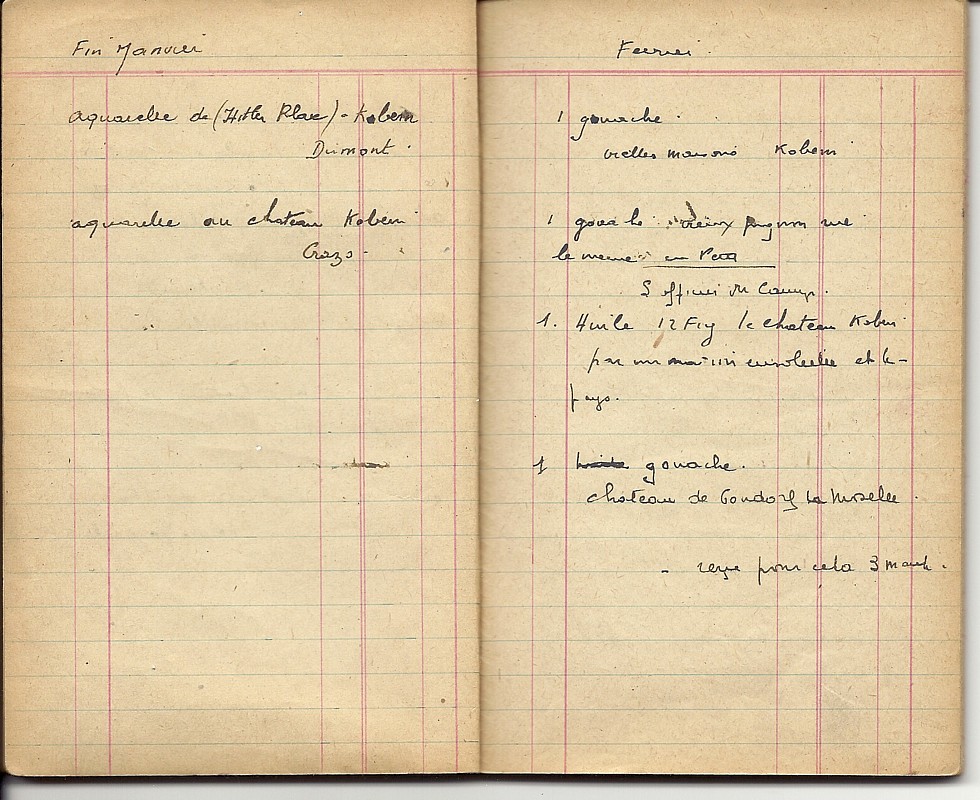 Fin Janvier
aquarelle de (Hitler Place) - Kobern
Dumont.
aquarelle au chateau Kobern
Crazo -
Fevrier.
1 gouache.
vielles maisons Kobern
1 goua he vieux pignon rue
le meme en Petit
S officier du Camp.
1. Huile 12 Fig le chateau Kobern
par un matin ensoleillé et le
pays.
1 gouache.
chateau de Gondorf La Moselle.
- reçu pour cela 3 mark.